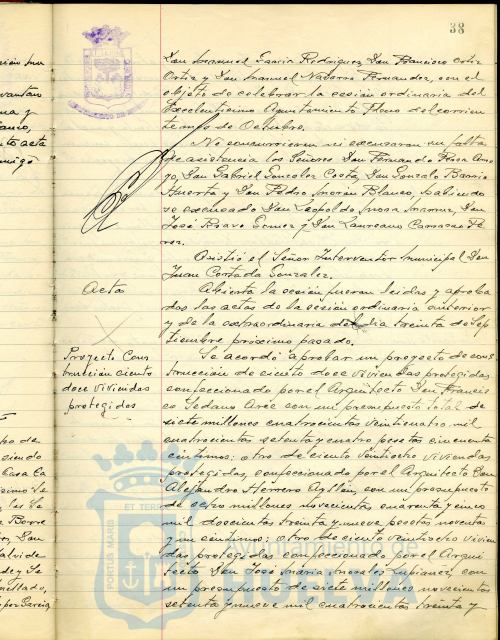 38
Don Manuel Garcia Rodriguez, Don Francisco Ortiz
Ortiz y Don Manuel Navarro Fernandez, con el
objeto de celebrar la sesión ordinaria del
Excelentisimo Ayuntamiento Pleno del corrien
te mes de Octubre.
No concurrieron ni excusaron su falta
de asistencia los Señores Don Fernando
Don Gabriel Gonzalez Costa, Don Gonzalo Barrio
Huerta y Don Pedro Morán Blanco, habiendo
se excusado Don Leopoldo Mora Don
José Bravo Gomez y Don Laureano Carrasco Pé
rez.
Asistió el Señor Interventor Municipal Don
Juan Cortada Gonzalez.
Acta
Abierta la sesión fueron leidas y aproba
das las actas de la sesión ordinaria anterior
y de la extraordinaria del dia treinta de Sep
tiembre próximo pasado.
Proyecto Cons
trucción ciento
doce viviendas
protegidas
Se acordó aprobar un proyecto de cons
trucción de ciento doce viviendas protegidas
confeccionado por el Arquitecto Don Francis
co Sedano Arce con un presupuesto total de
siete millones cuatrocientas veinticuatro mil
cuatrocientas setenta y cuatro pesetas cincuenta
céntimos; otro de ciento veintiocho viviendas
protegidas, confeccionado por el Arquitecto Don
Alejandro Herrero Ayllón, con un presupuesto
de ocho millones novecientas cuarenta y cinco
mil doscientas treinta y nueve pesetas noventa
y un céntimos; otro de ciento veintiocho vivien
das protegidas confeccionado por el Arqui
tecto Don José Maria Morales Lupiañez, con
un presupuesto de siete millones novecientas
setenta y nueve mil cuatrocientas treinta y